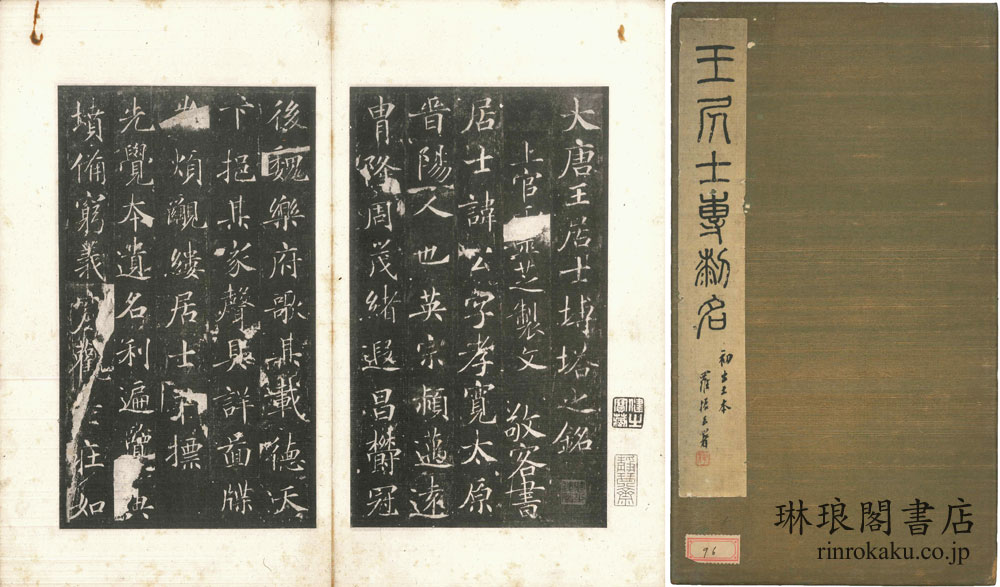 大唐王居士塼塔之銘
上官 芝製文 敬客書
居士諱公字孝寬太原
晉陽人也英宗頴邁遠
胄隆周茂緒遐昌欝冠
後魏樂府歌其載德天
下挹其家聲具詳圖牒
煩覼縷居士 標
先覺本遺名利遍覽 典
墳備窮義 觀 往如
王居士專剻名
初出土本
羅振玉署
76
琳琅閣書店
rinrokaku.co.jp